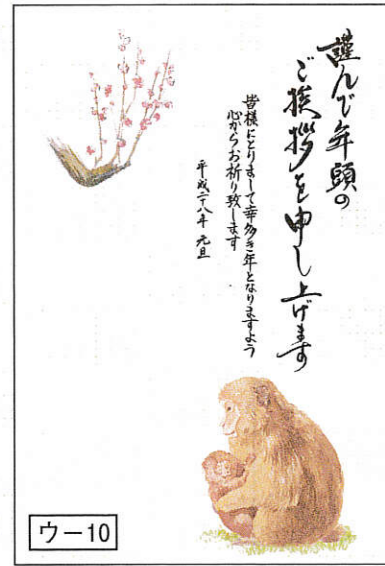 謹んで年頭の
ご挨拶を申し上げます
皆様にとりまして幸多き年となりますよう
心からお祈り致します
平成二十八年 元旦
ウー10